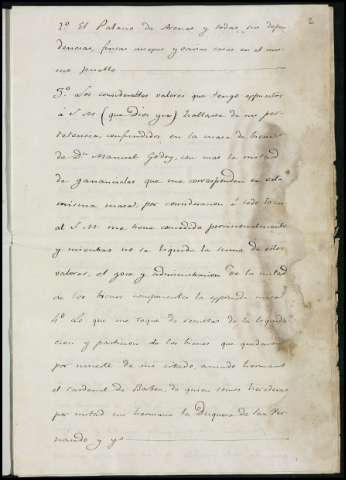 2
2º El Palacio de Arenas y todas sus depen
dencias, fincas anexas y varias casas en el mis
mo pueblo
3º Los considerables valores que tengo expuestos
á S. M. (que Dios gue) hallarse de mi per
tenencia, confundidos en la masa de bienes
de Dn Manuel Godoy, con mas la mitad
de gananciales que me corresponden en esta
misma masa, por consideracion á todo lo cual
el S. M. me tiene concedida provisionalmente
y mientras no se liquida la suma de estos
valores, el goce y administracion de la mitad
de los bienes componentes la expresada masa
4º Lo que me toque de resultas de la liquida
cion y particion de los bienes que quedaron
por muerte de mi citado, amado hermano
el cardenal de Borbon, de quien somos herederas
por mitad mi hermana la Duquesa de San Fer
nando y yo